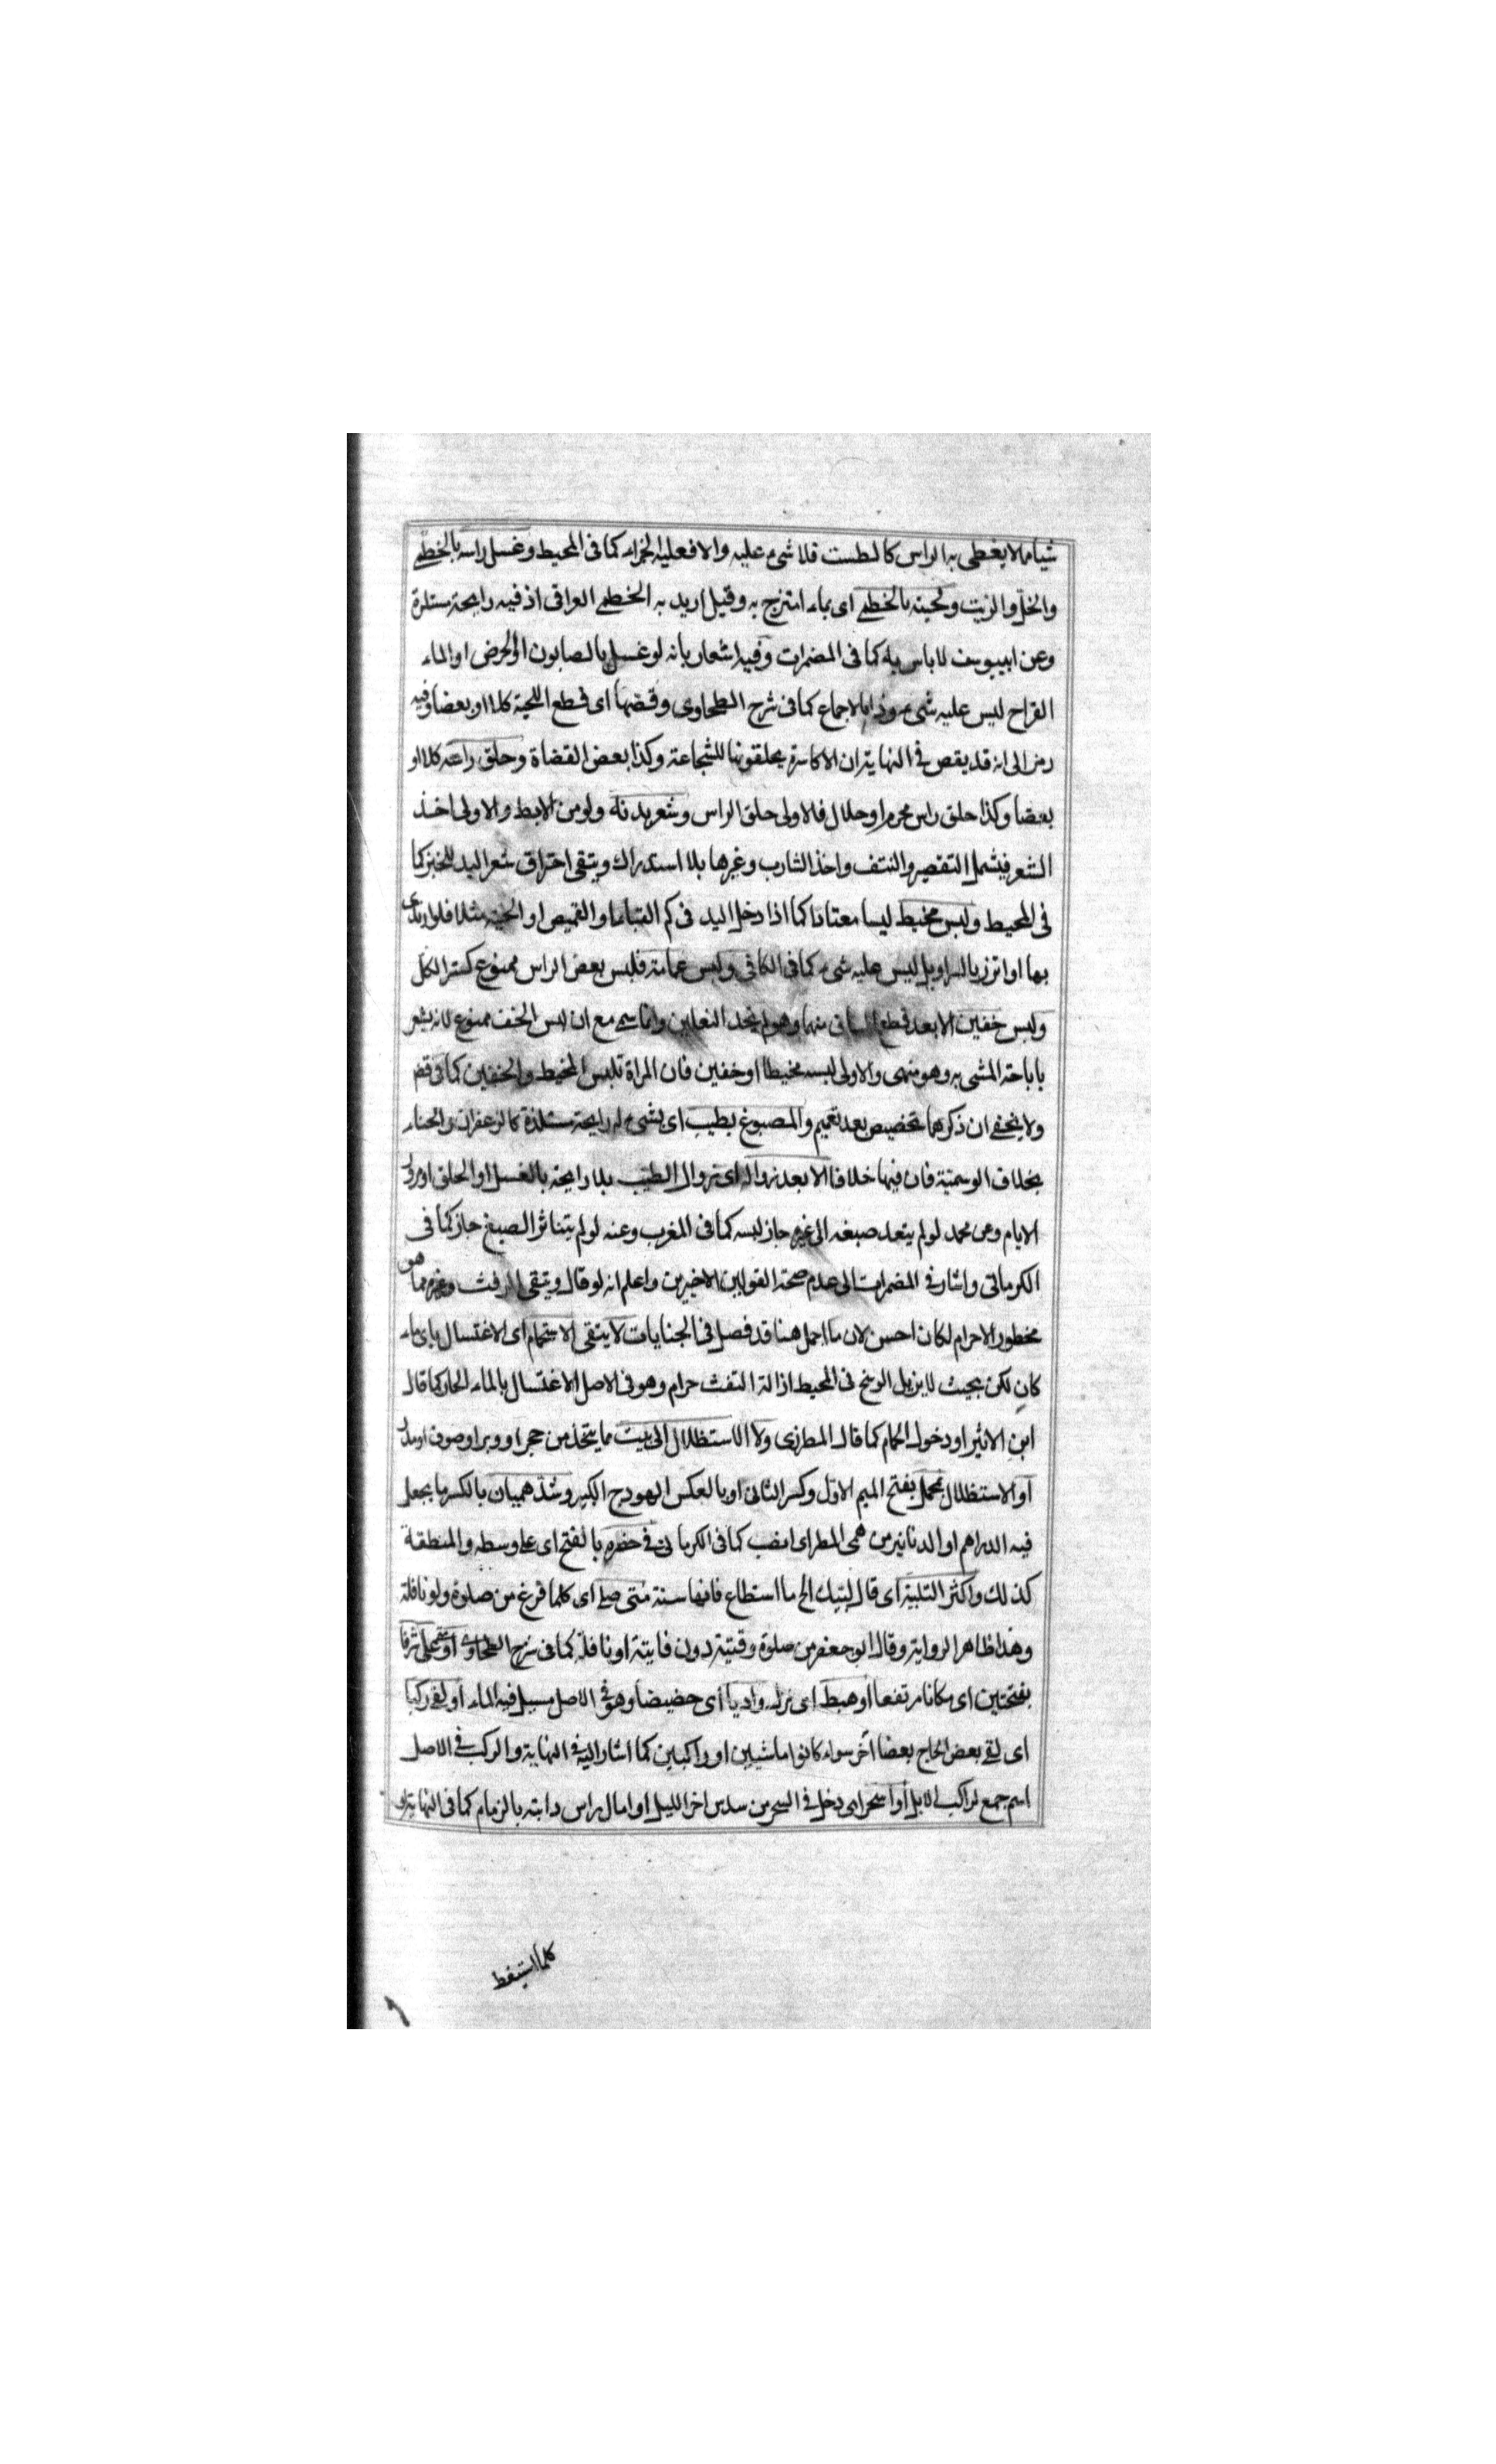 شيأ مما لا يغطى به الراس كالطست فلا شىء عليه والا فعليه الجزاء كما فى المحيط وغسل راسه بالخطمى
والخل والزيت ولحيته بالخطمى اى بماء امتزج به وقيل اريد به الخطمى العراقى اذ فيه رايحة مستلذة
وعن ابييوسف لا باس به كما فى المضمرات وفيه اشعار بانه لو غسل بالصابون او الحرض او الماء
القراح ليس عليه شىء وذا بالاجماع كما فى شرح الطحاوى وقصها اى قطع اللحية كلا او بعضا وفيه
رمز الى انه قد يقص فى النهاية ان الاكاسرة يحلقونها للشجاعة وكذا بعض القضاة وحلق راسه كلا او
بعضا وكذا حلق راس محرم او حلال فالاولى حلق الراس وشعر بدنه ولو من الابط والاولى اخذ
الشعر فيشمل التقصير والنتف واخذ الشارب وغيرها بلا استدراك ويتقى احتراق شعر اليد للخبز كما
فى المحيط ولبس مخيط لبسا معتادا كما اذا دخل اليد فى كم القباء او القميص او الجبة مثلا فلو ارتدى
بها او اتزر بالسراويل ليس عليه شىء كما فى الكافى ولبس عمامة فلبس بعض الراس ممنوع كستر الكل
ولبس خفين الا بعد قطع الساق منهما وهو اى نحد النعلين وانما سمى مع ان لبس الخف ممنوع لانه يشعر
باباحة المشى به وهو منهى والاولى لبسه مخيطا او خفين فان المراة تلبس المخيط والخفين كما فى قضم
ولا يخفى ان ذكرهما تخصيص بعد تعميم والمصبوغ بطيب اى بشىء له رايحة مستلذة كالزعفران والحناء
بخلاف الوسمية فان فيها خلافا الا بعد زواله اى زوال الطيب بلا رايحة بالغسل او الحلق او مرور
الايام وعن محمد لو لم يتعد صبغه الى غيره جاز لبسه كما فى المغرب وعنه لو لم يتناثر الصبغ جاز كما فى
الكرمانى واشار فى المضمرات الى عدم صحة القولين الاخيرين واعلم انه لو قال ويتقى الرفث وغيره مما هو
محظور الاحرام لكان احسن لان ما اجمل هنا قد فصل فى الجنايات لا يتقى الاستحمام اى الاغتسال باى ماء
كان لكن بحيث لا يزيل الوسخ فى المحيط ازالة التفث حرام وهو فى الاصل الاغتسال بالماء الحار كما قال
ابن الاثير او دخول الحمام كما قال المطرزى ولا الاستظلال الى بيت ما يتخذ من حجر او وبر او صوف او مدر
او الاستظلال بمحمل بفتح الميم الاول وكسر الثانى او بالعكس الهودج الكبير وشد هميان بالكسر ما يجعل
فيه الدراهم او الدنانير من همى المطر اى انصب كما فى الكرمانى فى حضره بالفتح اى على وسطه والمنطقة
كذلك واكثر التلبية اى قال لبيك الخ ما استطاع فانها سنة متى صلى اى كلما فرغ من صلوة ولو نافلة
وهذا ظاهر الرواية وقال ابو جعفر من صلوة وقتية دون فايتة او نافلة كما فى شرح الطحاوى او علا شرفا
بفتحتين اى مكانا مرتفعا او هبط اى نزل واديا اى حضيضا وهو فى الاصل مسيل فيه الماء او لقى ركبا
اى لقى بعض الحاج بعضا آخر سواء كانوا ماشيين او راكبين كما اشار اليه فى النهاية والركب فى الاصل
اسم جمع لراكب الابل او اسحر اى دخل فى السحر من سدس اخر الليل او امال راس دابته بالزمام كما فى النهاية او
كلما استيقظ